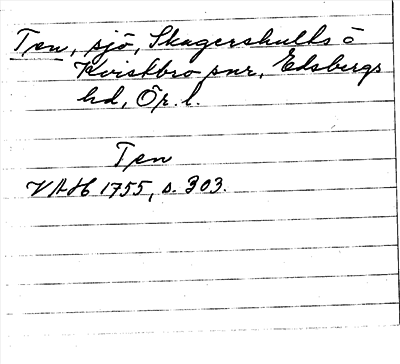 Ten, sjö, Skagershults o
Kvistbro snr, Edsbergs
hd, Ör. l.
Ten
VAH 1755, s. 303.